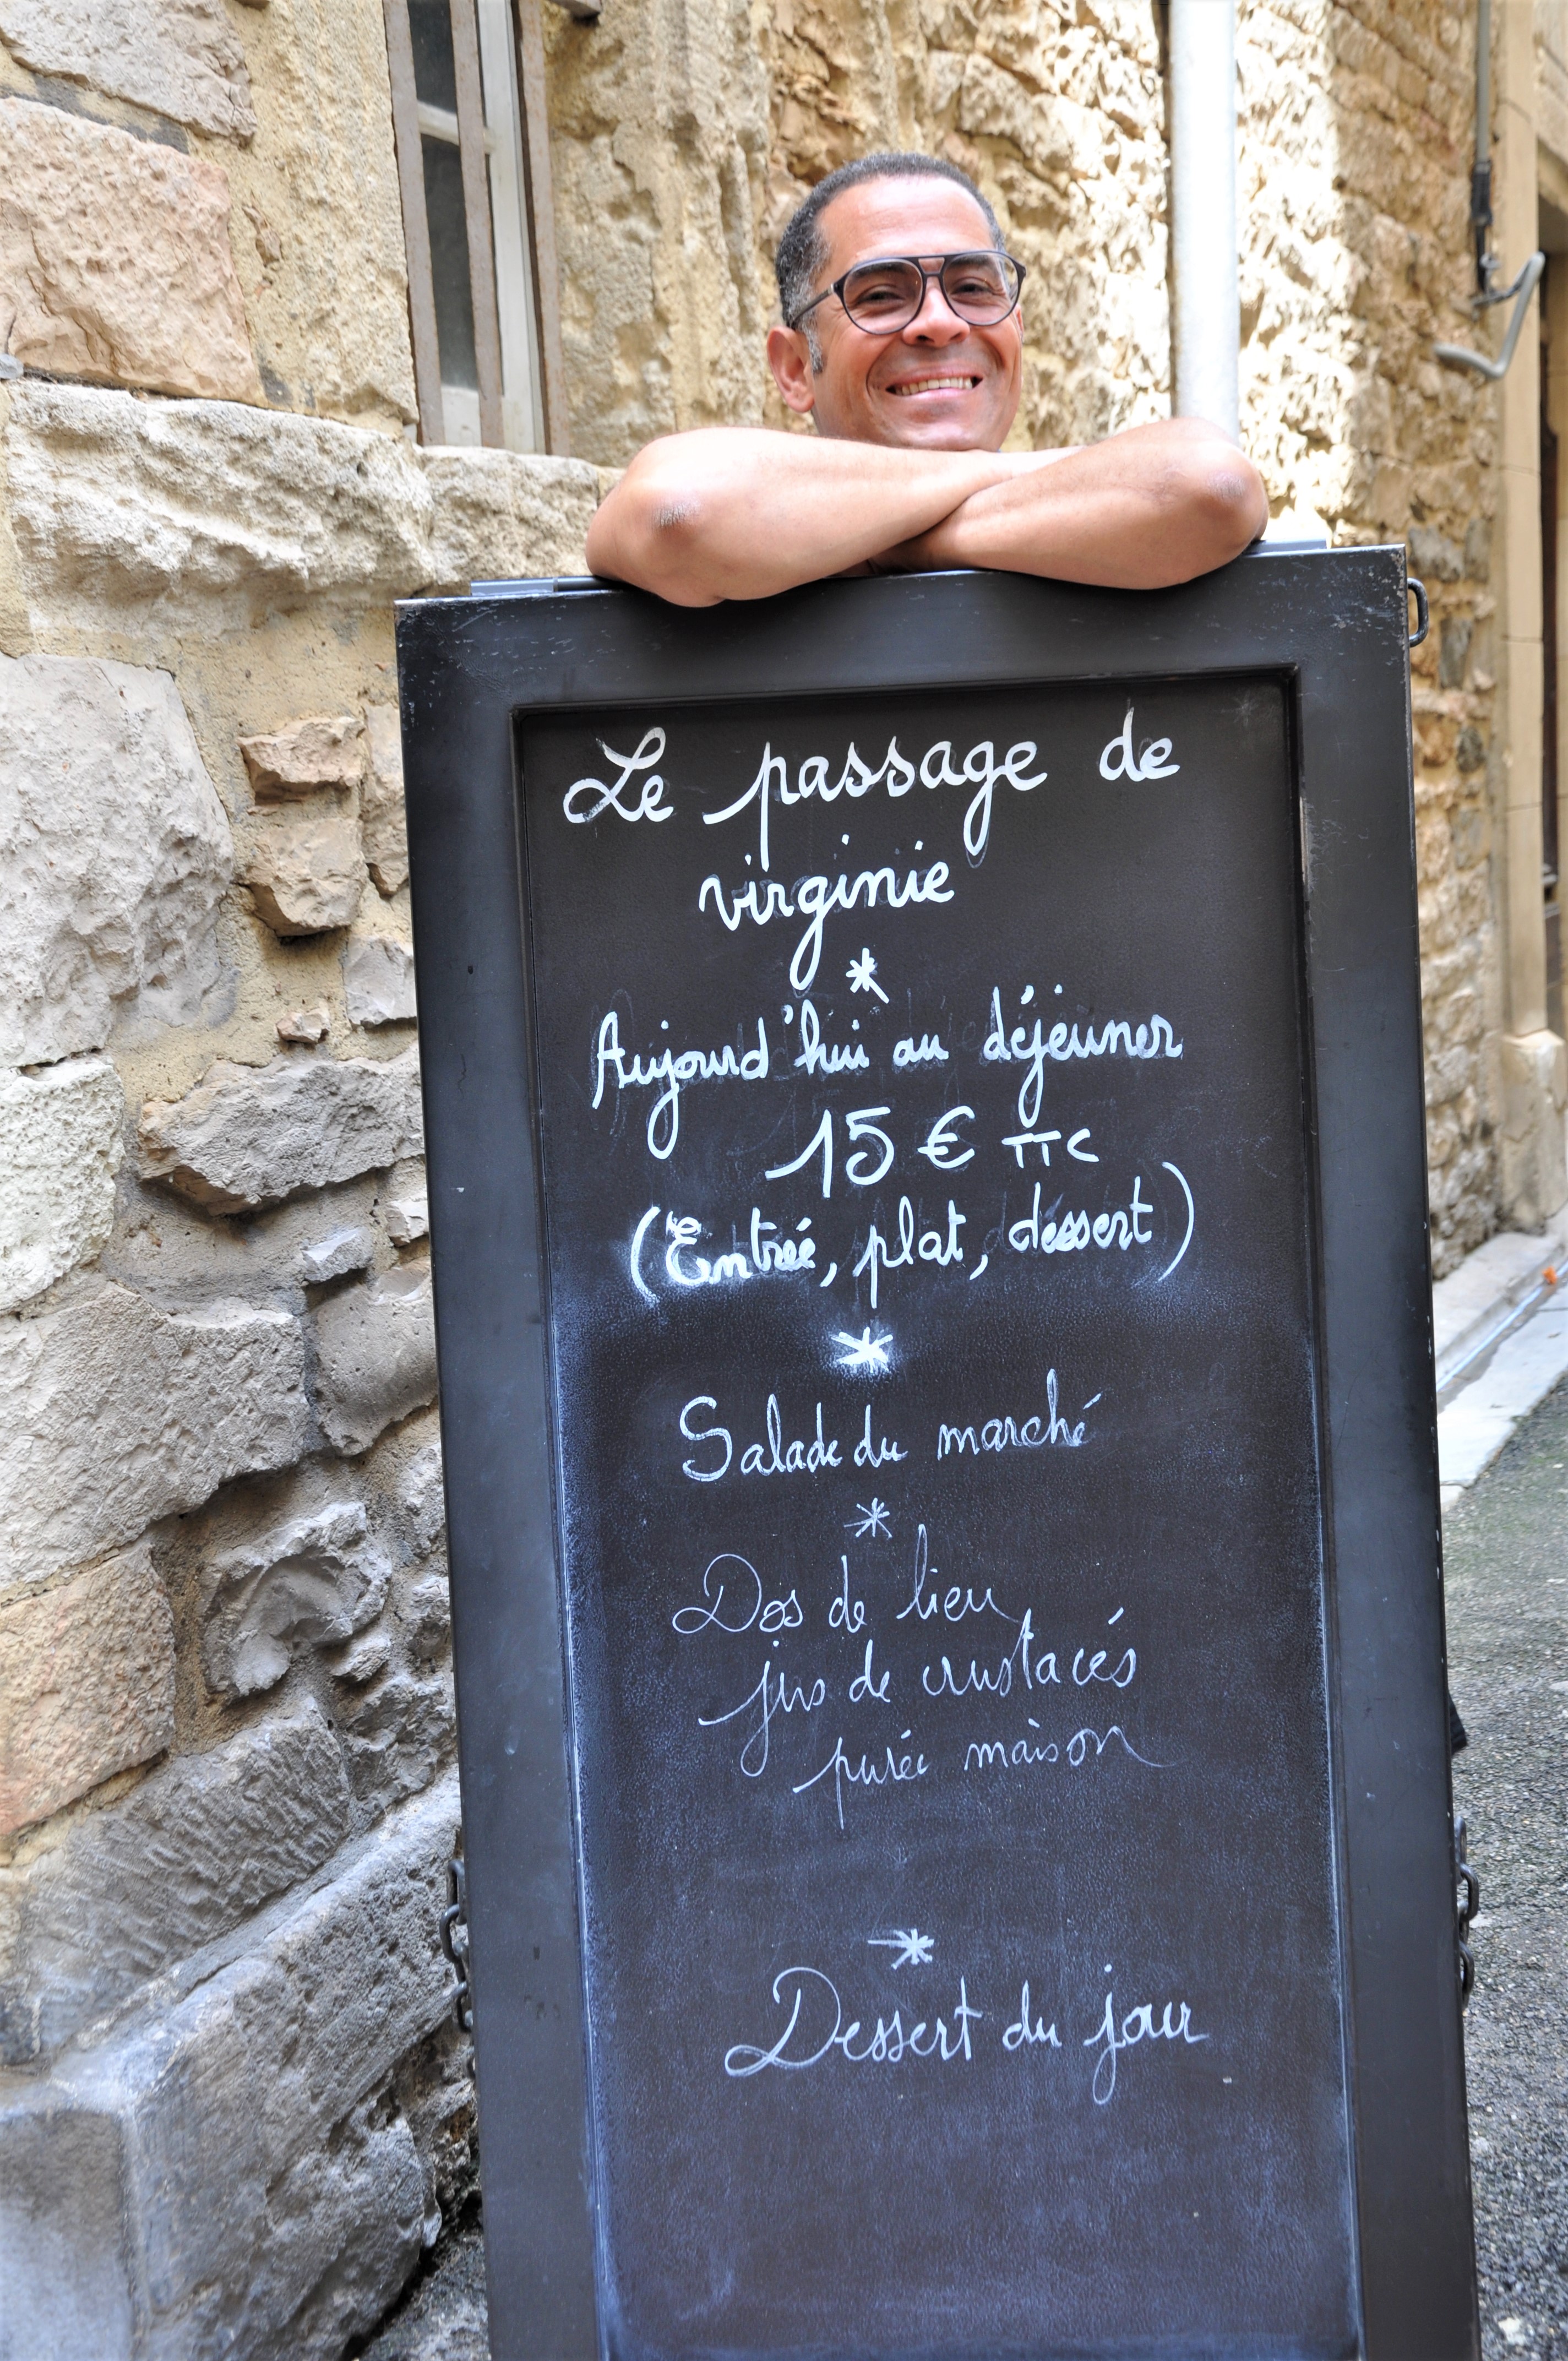 Le passage de
virginie
*
Aujourd'hui au déjeuner
15 € TTC
(Entrée, plat, dessert)
*
Salade du marché
*
Dos de lieu
jus de crustacés
purée maison
*
Dessert du jour